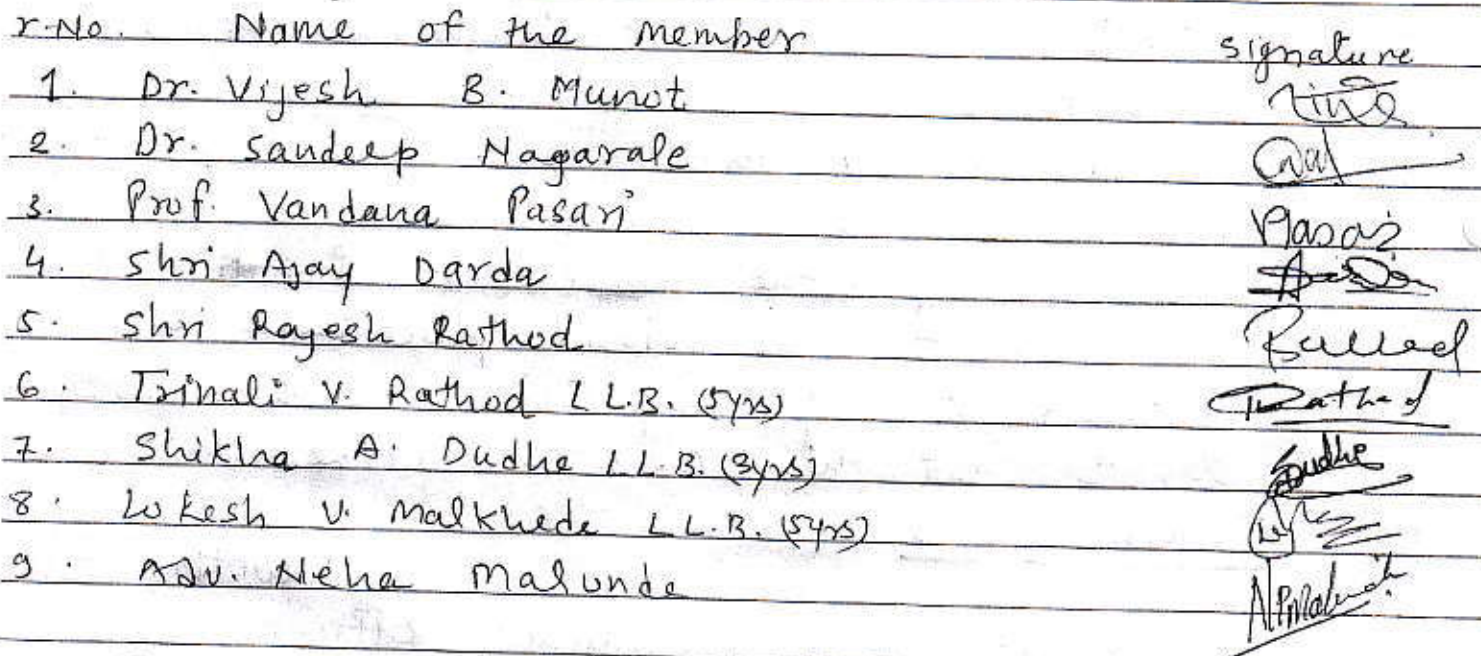 r.No. Name of the member signature
1. Dr. Vijesh B. Munot
2. Dr. Sandeep Nagarale
3. Prof. Vandana Pasari Pasari
4. Shri Ajay Darda
5. Shri Rajesh Rathod
6. Trinali V. Rathod L L.B. (5yrs) Rathod
7. Shikha A. Dudhe L L.B. (3yrs) SDudhe
8. Lokesh V. Malkhede L L.B. (5yrs)
9. Adv. Neha Malunde